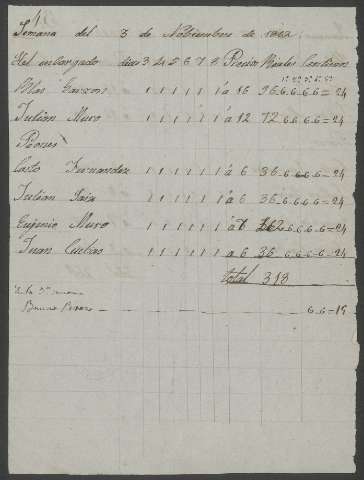 Semana del 3 de Nobiembre de 1862
El encargado dias 3 4 5 6 7 8 Precios Reales Centimos
Blas Garzon 1 1 1 1 1 1 á 16 96 6 6 6 6 = 24
Julian Muro 1 1 1 1 1 1 á 12 72 6 6 6 6 = 24
Peones
Casto Fernandez 1 1 1 1 1 1 á 6 36 6 6 6 6 = 24
Julian Saiz 1 1 1 1 1 1 á 6 36 6 6 6 6 = 24
Eujenio Muro 1 1 1 1 1 1 á 7 42 6 6 6 6 = 24
Juan Cuebas 1 1 1 1 1 1 á 6 36 6 6 6 6 = 24
total 318
Bruno 6 6 = 15